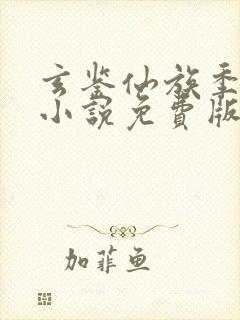 玄鉴仙族季
小說免費版
加菲魚